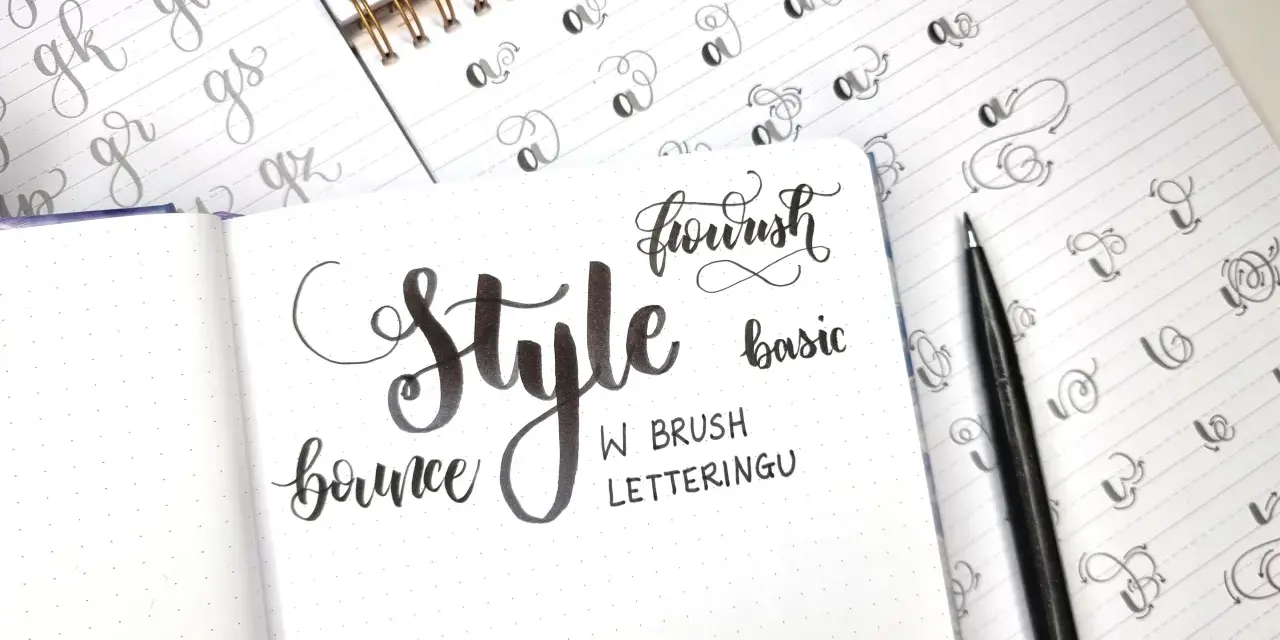 gk
gs
gr
gz
a
a
a
a
a
a
a
a
flourish
Style
basic
bounce
W BRUSH
LETTERINGU